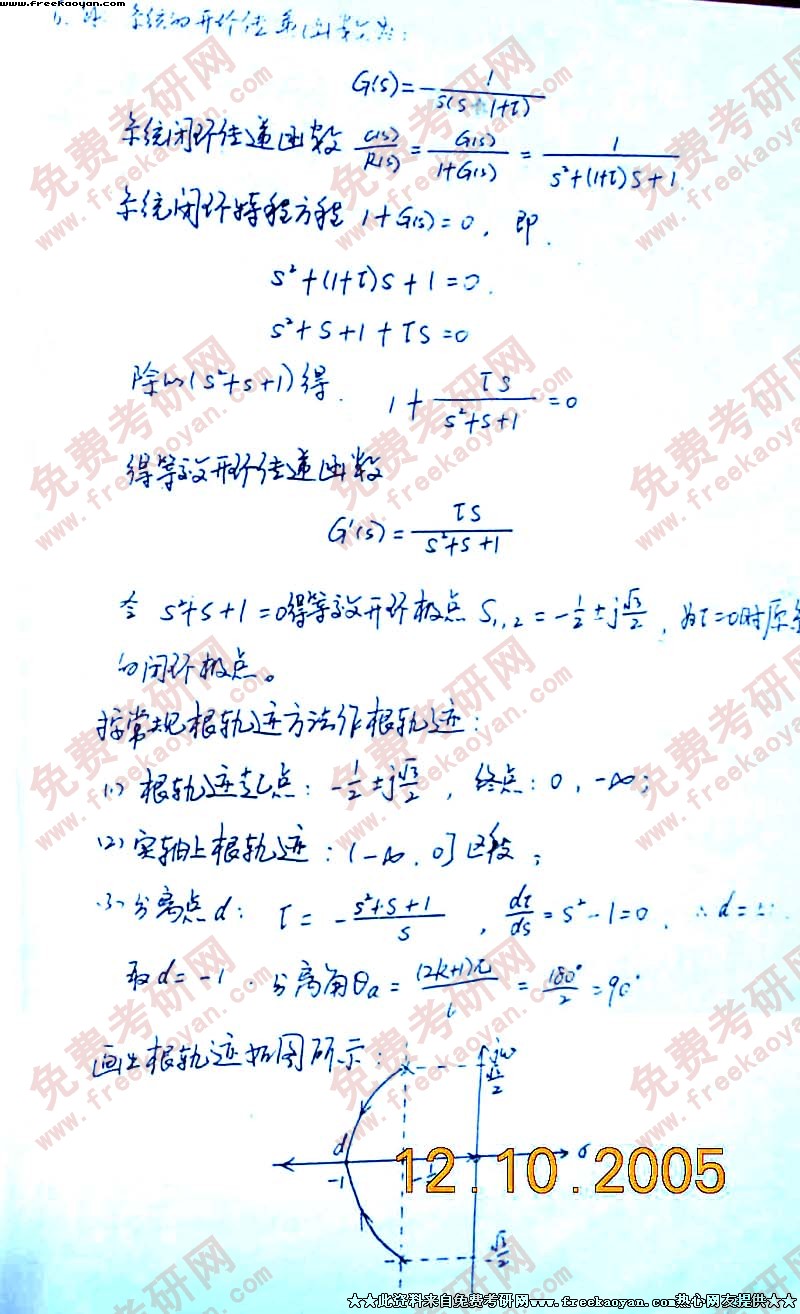 www.freekaoyan.com
解: 系统的开环传递函数为:
G(s)=-\frac{1}{s(s+1+τ)}
系统闭环传递函数 \frac{C(s)}{R(s)}=\frac{G(s)}{1+G(s)}=\frac{1}{s²+(1+τ)s+1}
系统闭环特程方程 1+G(s)=0, 即
s²+(1+τ)s+1=0.
s²+s+1+τs=0
除以(s²+s+1)得. 1+\frac{τs}{s²+s+1}=0
得等效开环传递函数
G'(s)=\frac{τs}{s²+s+1}
令 s²+s+1=0得等效开环极点 S₁,₂=-\frac{1}{2}±j\frac{√3}{2}, 为τ=0时原系
的闭环极点。
按常规根轨迹方法作根轨迹:
(1) 根轨迹起点: -\frac{1}{2}±j\frac{√3}{2}, 终点: 0, -∞;
(2) 实轴上根轨迹: (-∞, 0] 区段;
(3) 分离点d: τ=-\frac{s²+s+1}{s}, \frac{dτ}{ds}=s²-1=0, ∴d=±1.
取d=-1. 分离角θa=\frac{(2k+1)π}{l}=\frac{180°}{2}=90°
画出根轨迹如图所示:
jω
\frac{√3}{2}
d
σ
-1
-\frac{1}{2}
-\frac{√3}{2}
12.10.2005
免费考研网
www.freekaoyan.com
★★此资料来自免费考研网www.freekaoyan.com热心网友提供★★